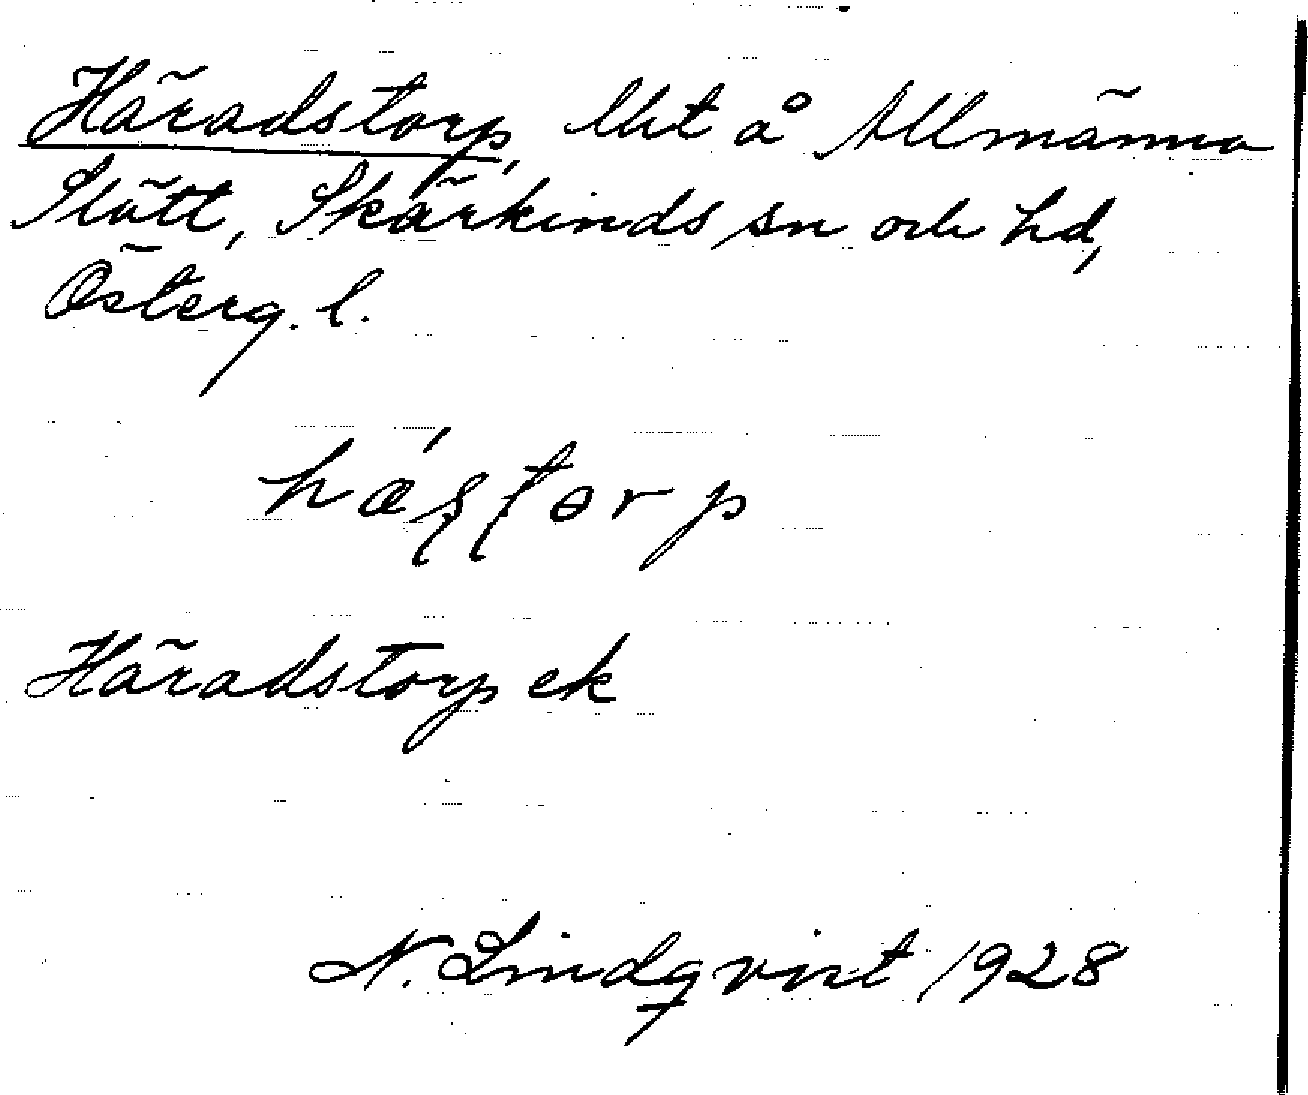 Häradstorp, lht å Allmänna
Slätt, Skärkinds sn och hd,
Österg. l.
hæştorp
Häradstorp ek
N. Lindqvist 1928